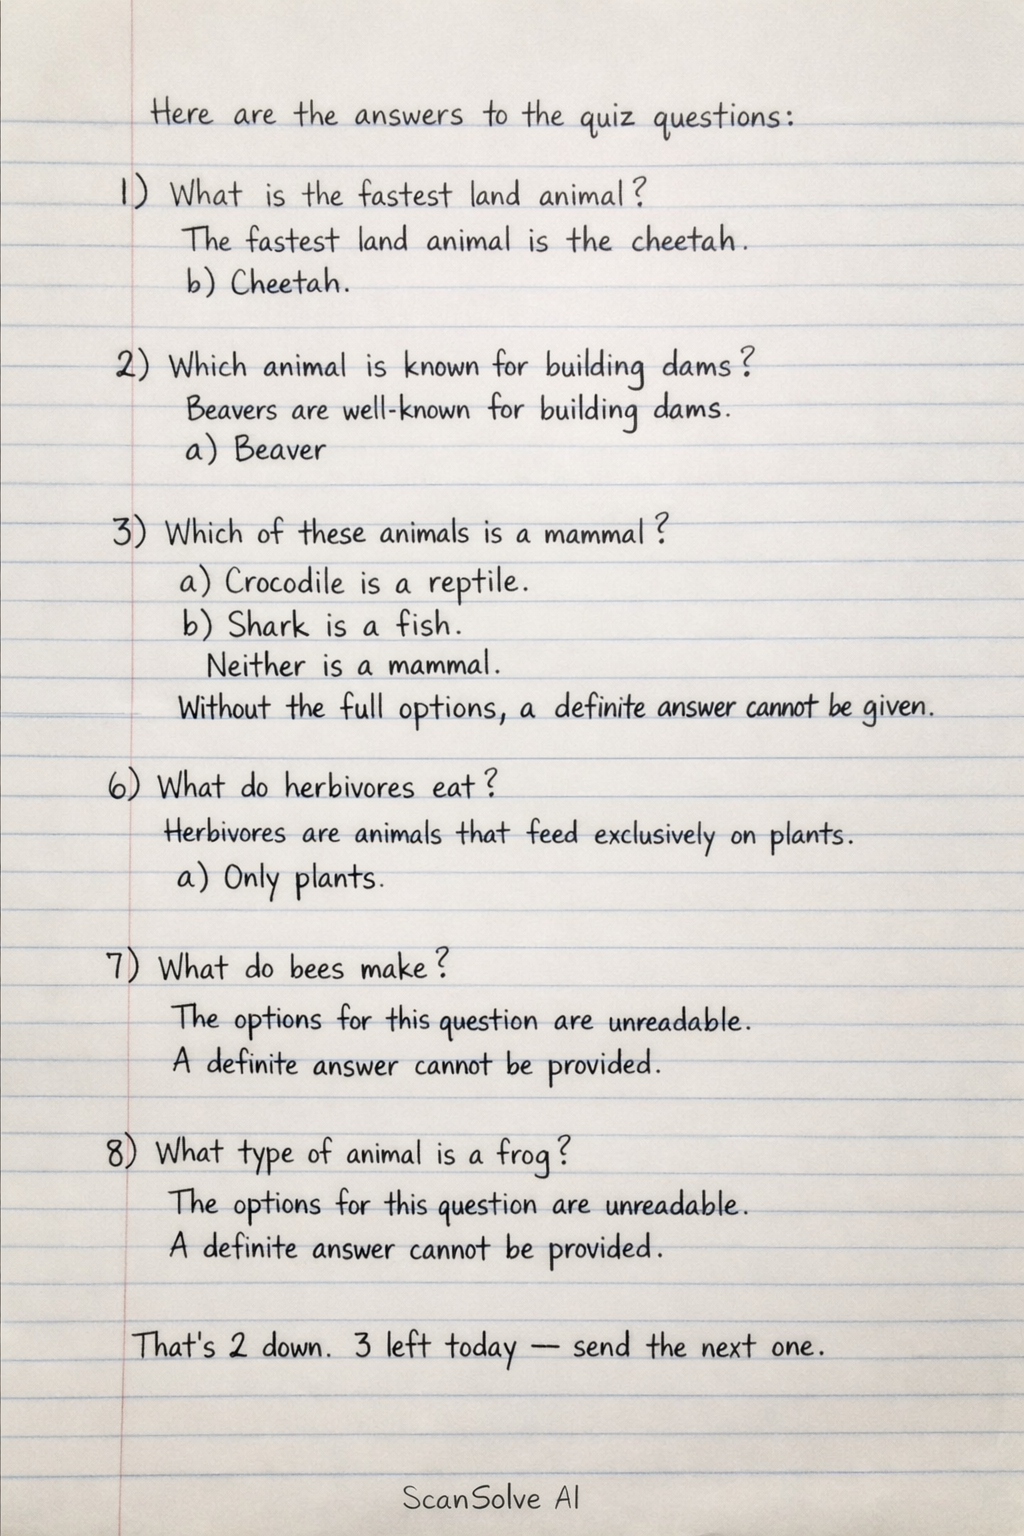 Here are the answers to the quiz questions:
1) What is the fastest land animal?
The fastest land animal is the cheetah.
b) Cheetah.
2) Which animal is known for building dams?
Beavers are well-known for building dams.
a) Beaver
3) Which of these animals is a mammal?
a) Crocodile is a reptile.
b) Shark is a fish.
Neither is a mammal.
Without the full options, a definite answer cannot be given.
6) What do herbivores eat?
Herbivores are animals that feed exclusively on plants.
a) Only plants.
7) What do bees make?
The options for this question are unreadable.
A definite answer cannot be provided.
8) What type of animal is a frog?
The options for this question are unreadable.
A definite answer cannot be provided.
That's 2 down. 3 left today — send the next one.
ScanSolve AI